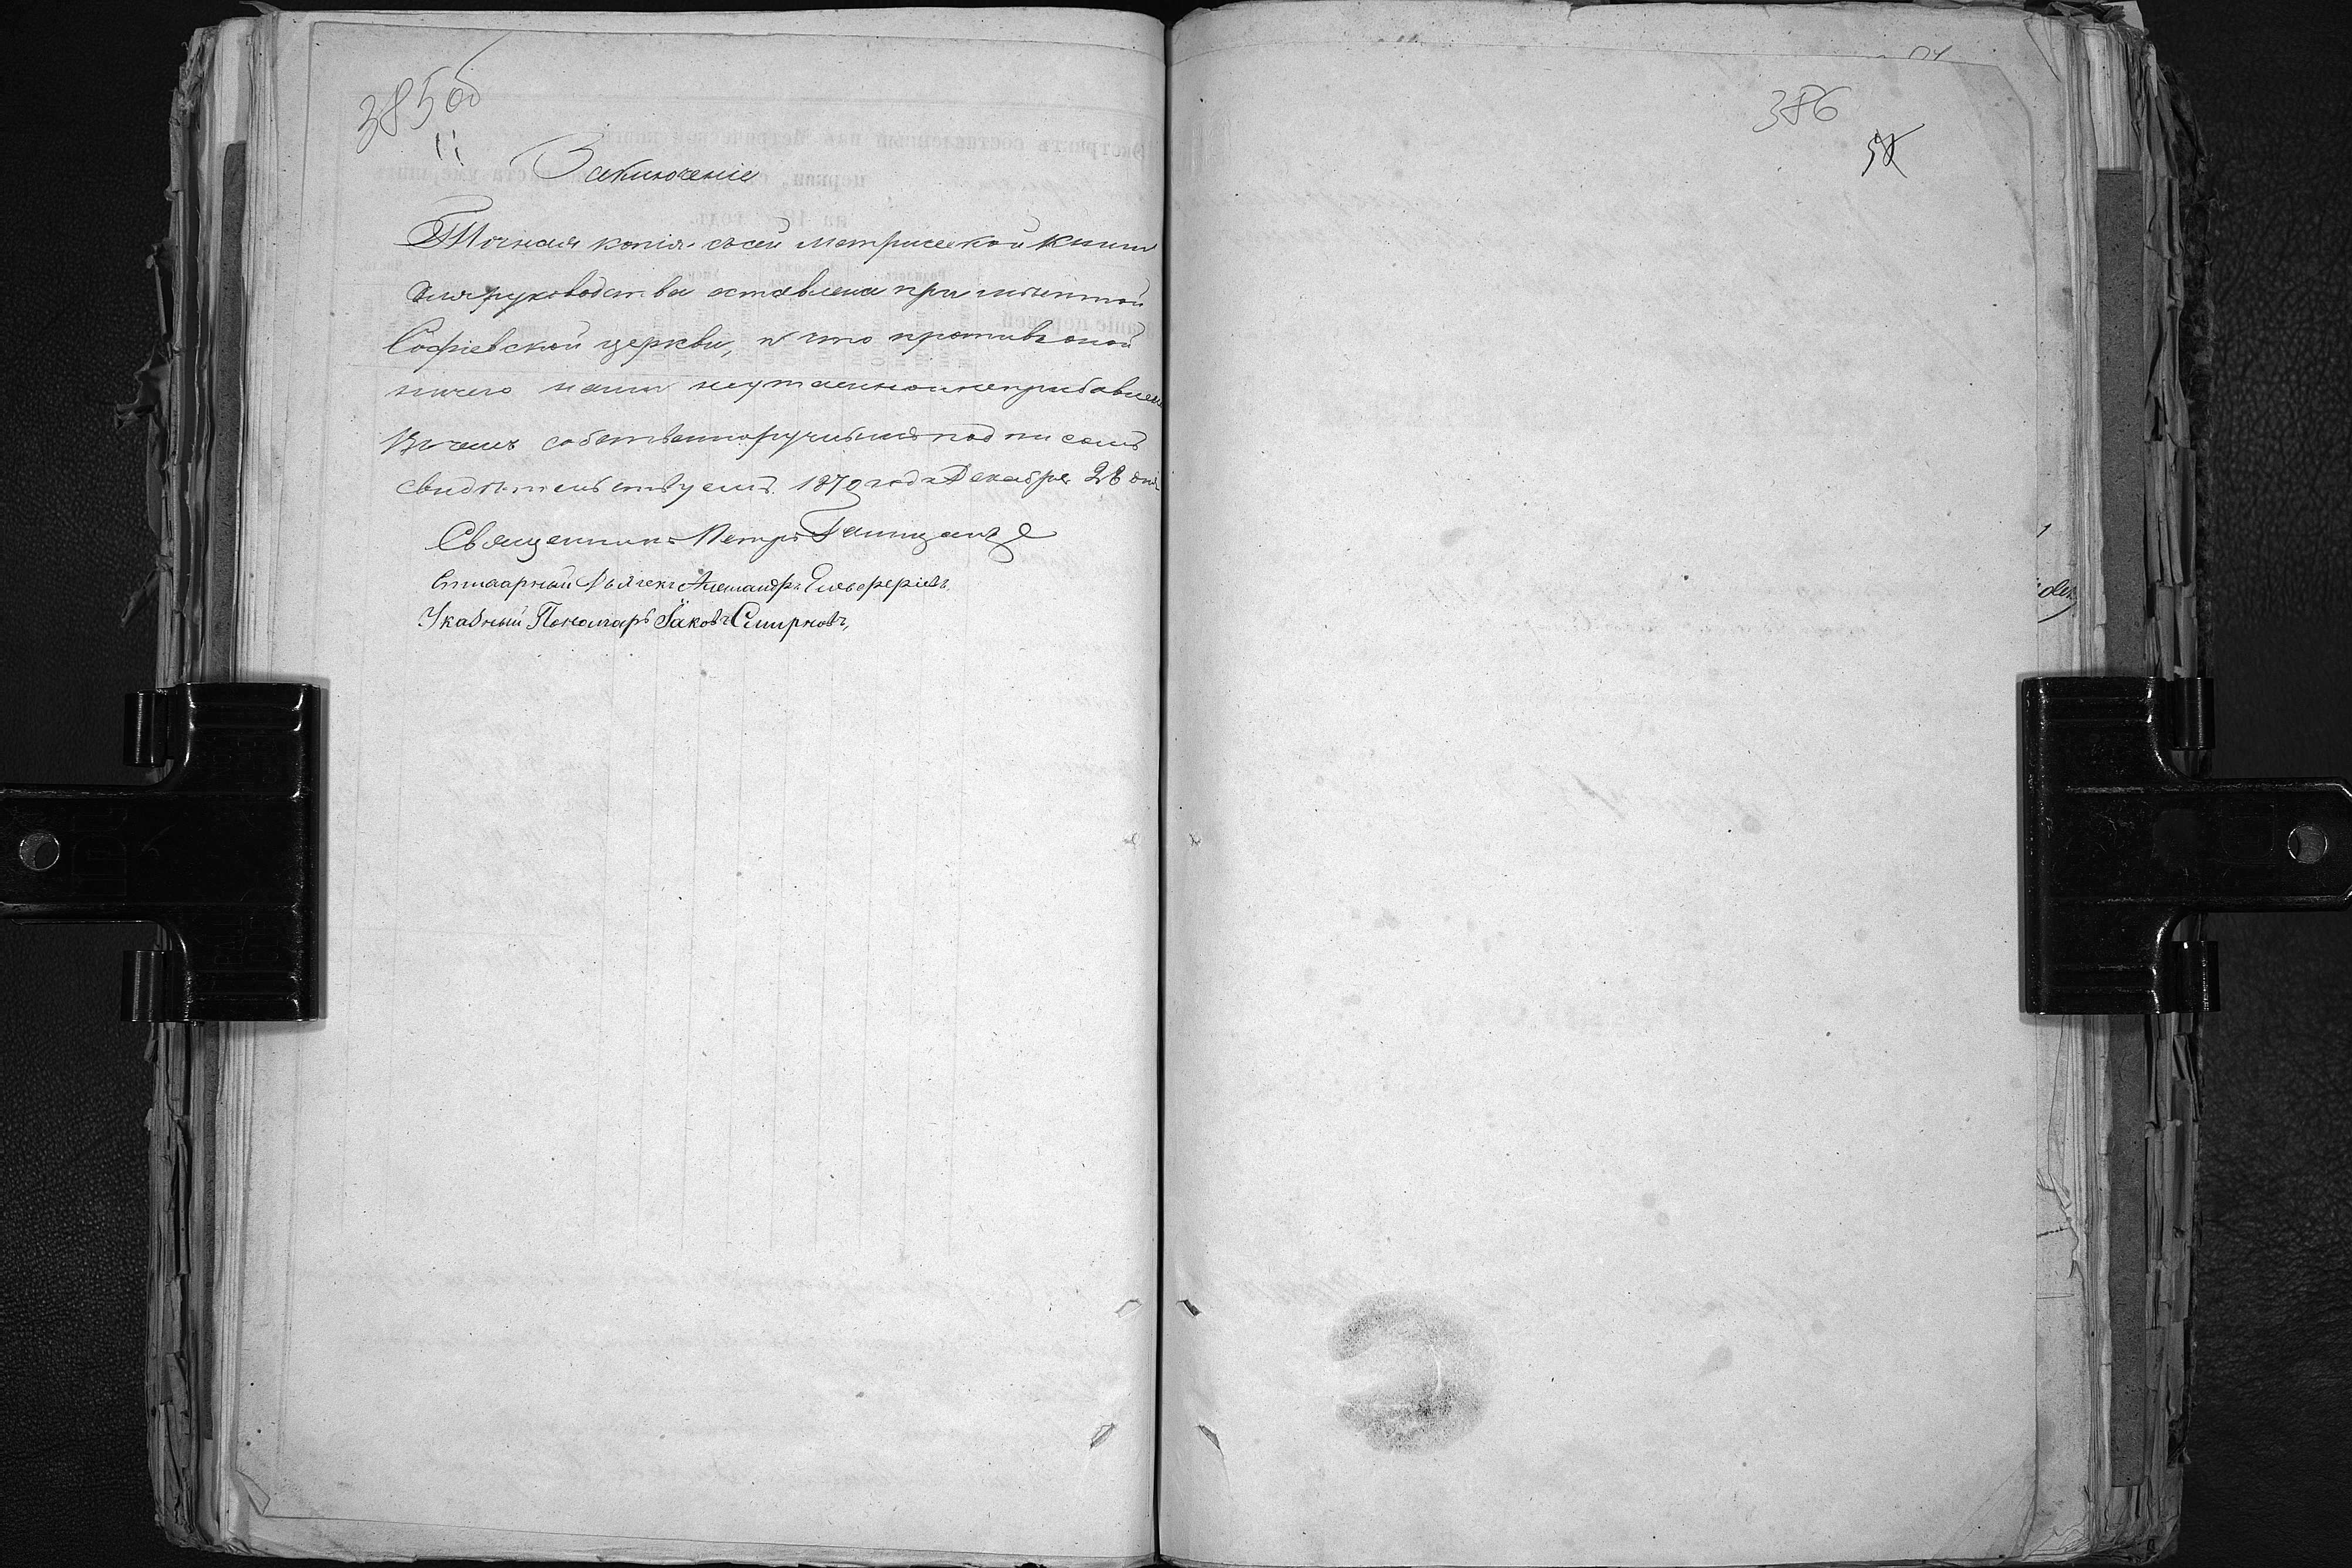 385об
Заключеніе
Точная копія съсей метрической книги
для руководства оставлена при мѣстной
Софіевской церкви, и что противъ оной
ничего нами неутаенно и неприбавлено
Въ чемъ собственноручнымъ подписомъ
свидѣтельствуемъ. 1870 года Декабря 28 дня
Священникъ Петръ
Дьячекъ Александръ Елевферіевъ
Указный Пономарь Іаковъ Смирновъ,
386